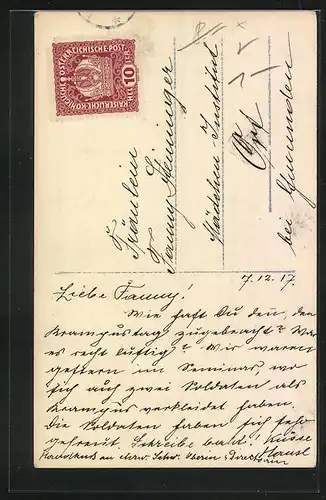 KAISERLICHE KÖNIGLICHE ÖSTERREICHISCHE POST
10
Fräulein
Fanny Heininger
Mädchen-Institut
Ort
bei Gmunden
7.12.17.
Liebe Fanny!
Wie hast Du den, den
Krampustag zugebracht? War
es recht lustig? Wir waren
gestern im Seminar, wo
sich auch zwei Soldaten als
Krampus verkleidet haben.
Die Soldaten haben sich sehr
gefreut. Schreibe bald! Küsse
Handkuß an Schw. Oberin Hansl